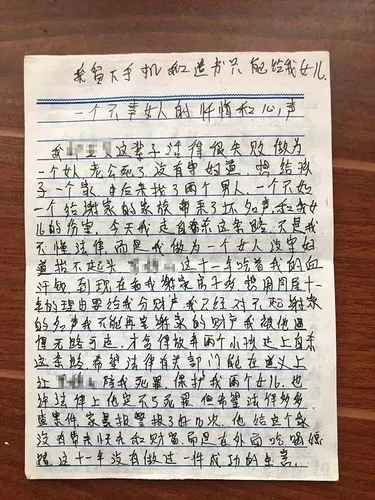 我留下手机和遗书只能给我女儿
一个不幸女人的忏悔和心声
我 这辈子活得很失败做为
一个女人老公死了没有守妇道 想给孩
子一个家 由后来找了两个男人 一个不如
一个给谢家的家族带来了坏名声和我女
儿的伤害 今天我走自杀这条路 不是我
不懂法律 而是我做为一个女人没守妇
道 不起 这十一年吃着我的血
汗钱 到现在和我谢家弟子 想用同居十
一年的理由要给我分财产我已经对不起谢家
的名声我不能再 谢家的财产我被他逼
得无路可走 才会律放弃两个小孩走上自杀
这条路 希望法律有关部门能在意义上
让 陪我死罪 保护我两个女儿 也
许法律上他定不了死罪 但希望法律多多
查案件 家暴报警报了好几次 他给这个家
没有带来 和财富 而是在外面吃喝嫖
赌 这十一年没有做过一件成功的生意